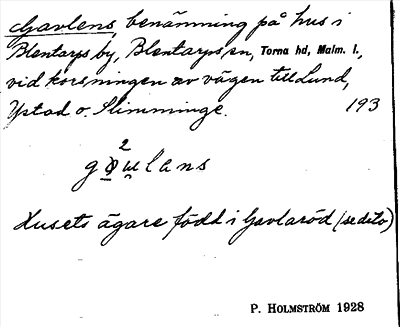 Gavlens, benämning på hus i
Blentarps by, Blentarps sn, Torna hd, Malm. l.,
vid korsningen av vägen till Lund,
Ystad o. Slimminge. 193
2
lans
Husets ägare född i Gavlaröd (se detto)
P. HOLMSTRÖM 1928